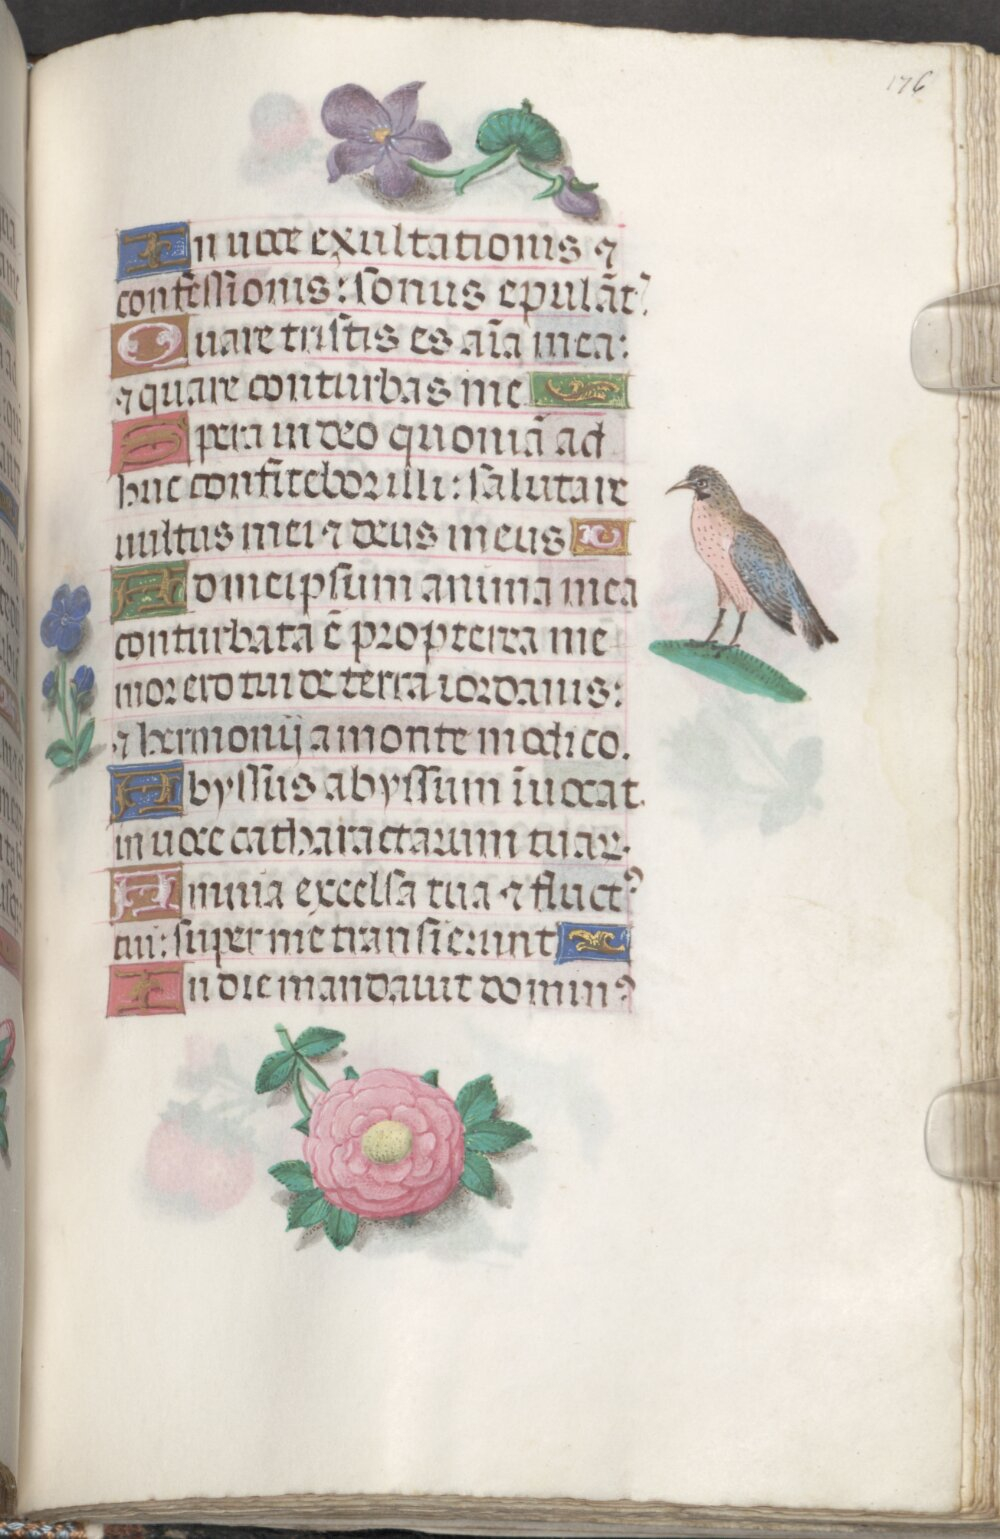 176
In uoce exultationis ⁊
confessionis: sonus epulãtꝰ
Quare tristis es aĩa mea:
⁊ quare conturbas me
Spera in deo quoniã ad
huc confitebor illi: salutare
uultus mei ⁊ deus meus
Ad me ipsum anima mea
conturbata ẽ propterea me
mor ero tui de terra iordanis:
⁊ hermonij a monte modico.
Abyssus abyssum ĩuocat.
in uoce catharactarum tuaꝝ.
Omnia excelsa tua ⁊ fluctꝰ
tui: super me transierunt
In die mandauit dominꝰ